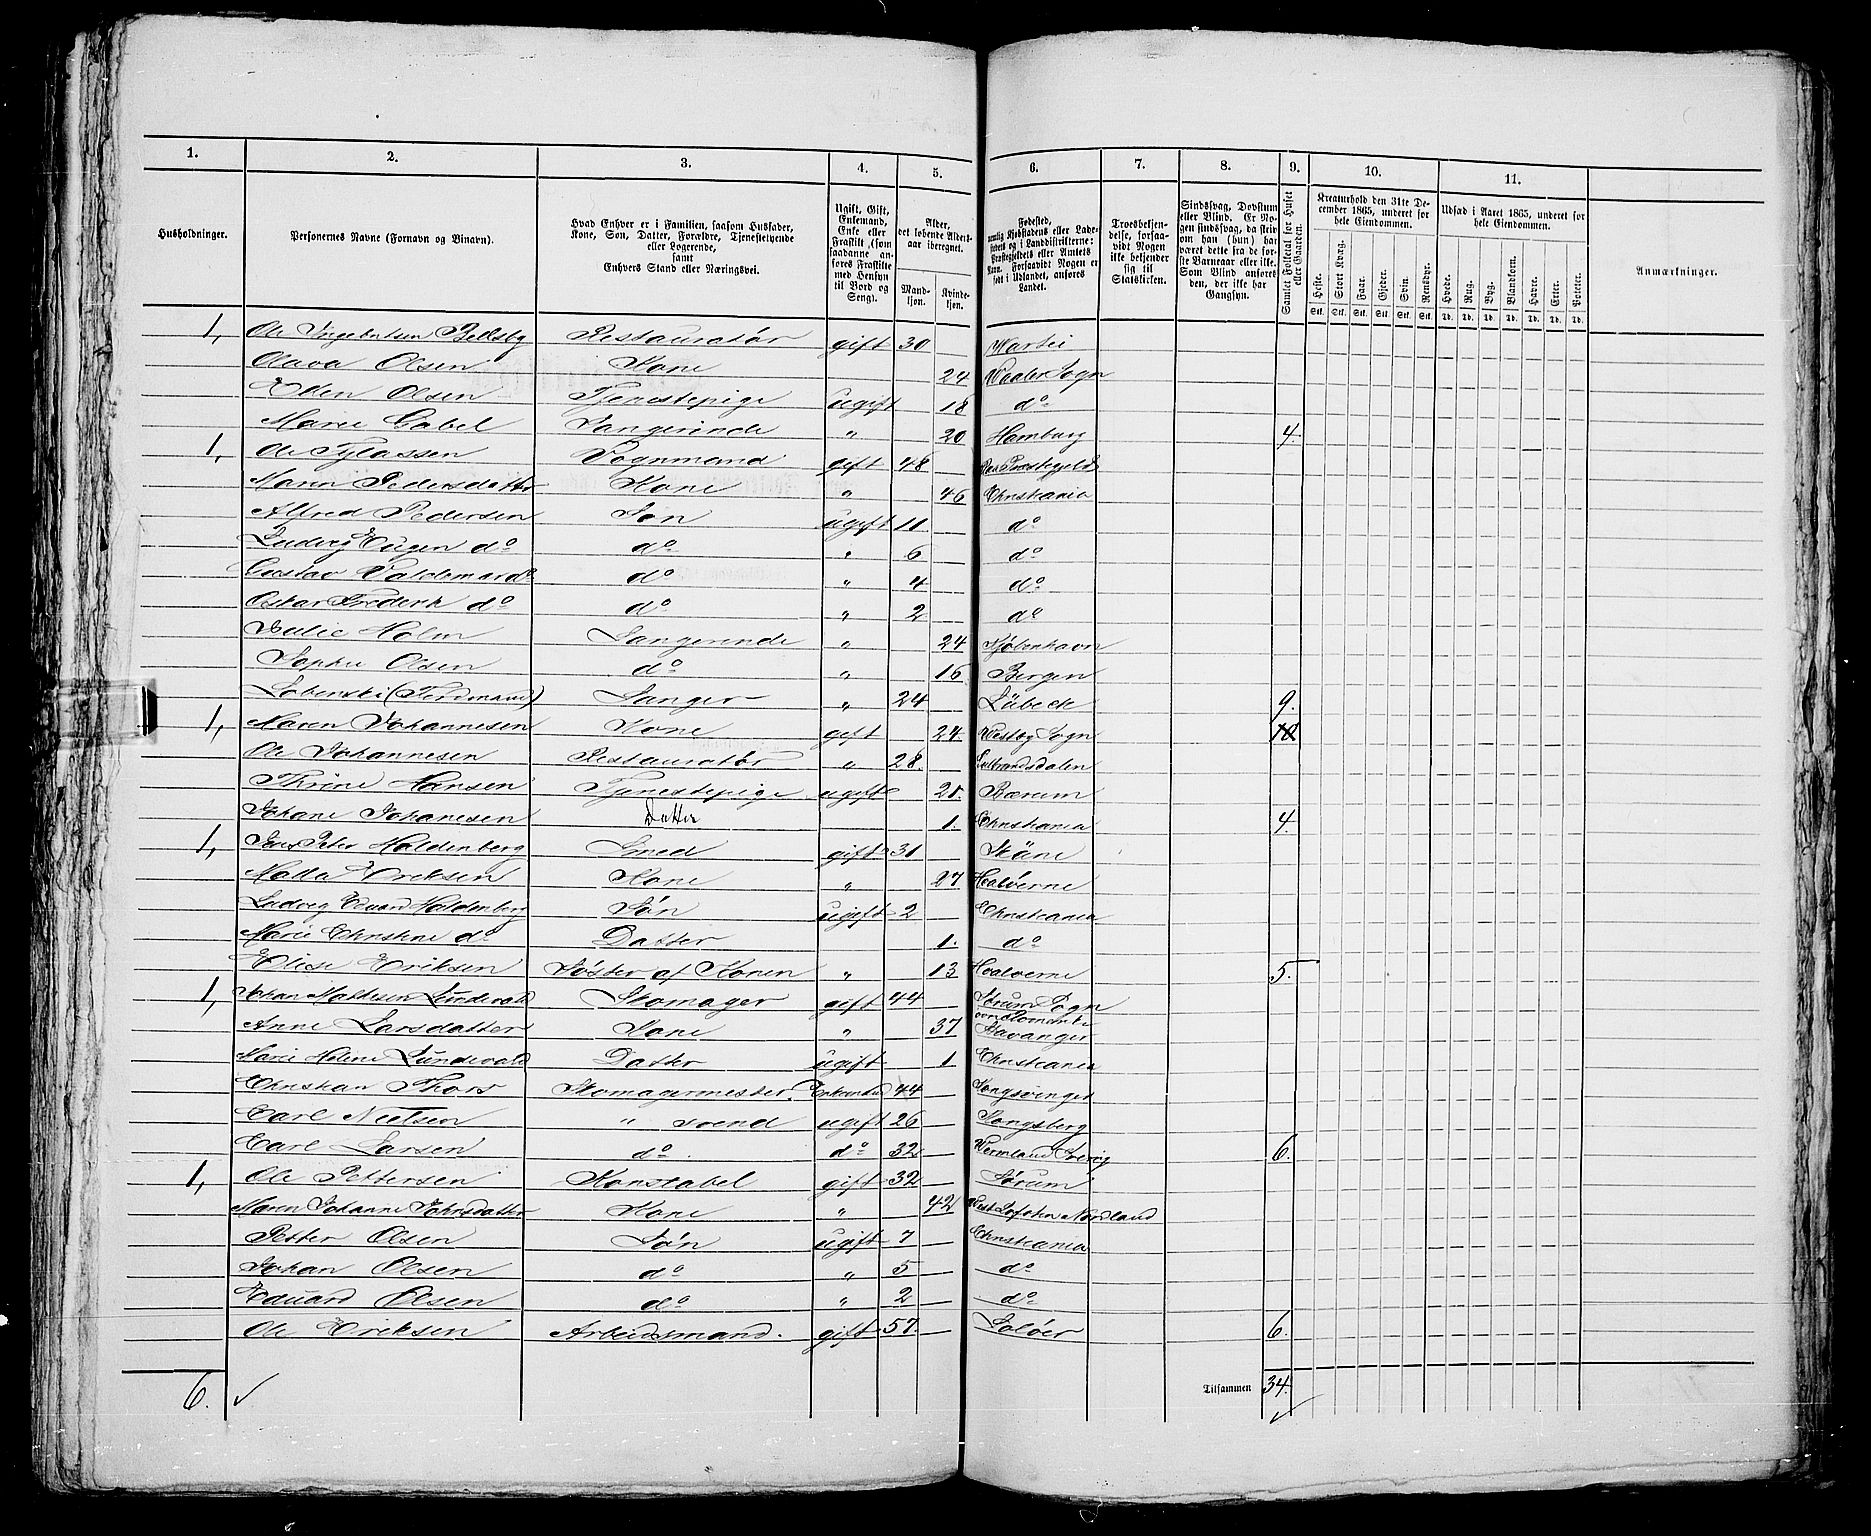 1. 2. 3. 4. 5. 6. 7. 8. 9. 10. 11.
Husholdninger.
Personernes Navne (Fornavn og Binavn).
Hvad Enhver er i Familien, saasom Husfader,
Kone, Søn, Datter, Forældre, Tjenestetyende
eller Logerende,
samt
Enhvers Stand eller Næringsvei.
Ugift, Gift,
Enkemand,
Enke eller
Fraskilt, (som
saadanne an-
føres Fraskilte
med Hensyn
til Bord og
Seng).
Alder,
det løbende Alders-
aar iberegnet.
Mand-
kjøn.
Kvinde-
kjøn.
Fødested,
nemlig Kjøbstadens eller Lade-
stedets og i Landdistrikterne:
Præstegjeldets eller Amtets
Navn. Forsaavidt Nogen er
født i Udlandet, anføres
Landet.
Troesbekjen-
delse, forsaa-
vidt Nogen
ikke bekjender
sig til
Statskirken.
Sindssvag, Døvstum
eller Blind. Er No-
gen sindssvag, da skriv
om han (hun) har
været dette fra de før-
ste Barneaar eller ikke.
Som Blind anføres
den, der ikke har
Gangsyn.
Samlet Folketal for Huset
eller Gaarden.
Kreaturhold den 31te De-
cember 1865, underet for
hele Eiendommen.
Heste. Stort Kvæg. Faar. Gjeder. Svin. Rensdyr.
Stk. Stk. Stk. Stk. Stk. Stk.
Udsæd i Aaret 1865, underet for
hele Eiendommen.
Hvede. Rug. Byg. Blandkorn. Havre. Erter. Poteter.
Td. Td. Td. Td. Td. Td. Td.
Anmærkninger.
1, Ole Ingebretsen Restauratør gift 30
Olava Olsen Kone 24 Waaler Sogn
Ellen Olsen Tjenestepige ugift 18 do
Marie Gabel Sangerinde " 20 Hamburg 4.
1, Ole Vognmand gift 48 Præstegjeld
Maren Pedersdatter Kone " 46 Christiania
Alfred Pedersen Søn ugift 11 do
Ludvig Eugen do do " 6 do
Gustav Valdemar do do " 4 do
Oskar Frederik do do " 2 do
Julie Holm Sangerinde " 24 Kjøbenhavn
Sophie Olsen do " 16 Bergen
Lobenski (Ferdinand) Sanger " 24 Lübeck 9.
1, Maren Johannesen Kone gift 24. Westby Sogn
Ole Johannesen Restauratør " 28. Gulbrandsdalen
Thrine Hansen Tjenestepige ugift 21. Bærum
Johane Johanesen Datter 1. Christiania 4.
1, Jens Peter Holdenberg Smed gift 31 Skåne
Eriksen Kone " 27 Hvaløerne
Ludvig Eduard Holdenberg Søn ugift 2 Christiania
Marie Christine do Datter 1. do
Elise Eriksen Søster af Konen " 13 Hvaløerne 5.
1, Johan Mathesen Lundevald Skomager gift 44 Sørum Sogn
Anne Larsdatter Kone " 37 Stavanger
Marie Helene Lundevald Datter ugift 1 Christiania
Christian Thors Skomagermester. Enkemand 44 Kongsvinger
Carl Nielsen " svend ugift 26 Kongsberg
Carl Larsen do do 32 Wermland Sverig 6.
1, Ole Pettersen Konstabel gift 32 Sørum
Maren Johanne Johnsdatter Kone " 42 Nordland
Petter Olsen Søn ugift 7 Christiania
Johan Olsen do " 5 do
Eduard Olsen do " 2 do
Ole Eriksen Arbeidsmand. gift 57. Soløer 6.
6. Tilsammen 34.